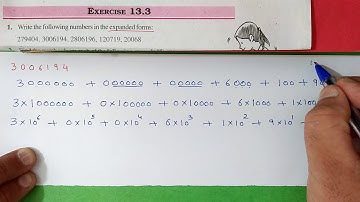 EXERCISE 13.3
1. Write the following numbers in the expanded forms:
279404, 3006194, 2806196, 120719, 20068
3006194
3000000 + 000000 + 00000 + 6000 + 100 + 9
3×1000000 + 0×100000 + 0×10000 + 6×1000 + 1×100
3×10⁶ + 0×10⁵ + 0×10⁴ + 6×10³ + 1×10² + 9×10¹ +